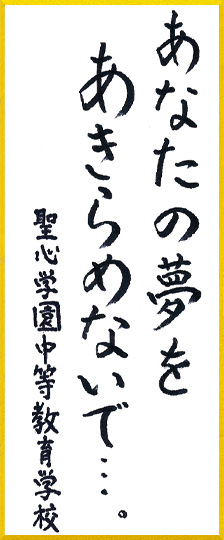 あなたの夢を
あきらめないで…。
聖心学園中等教育学校